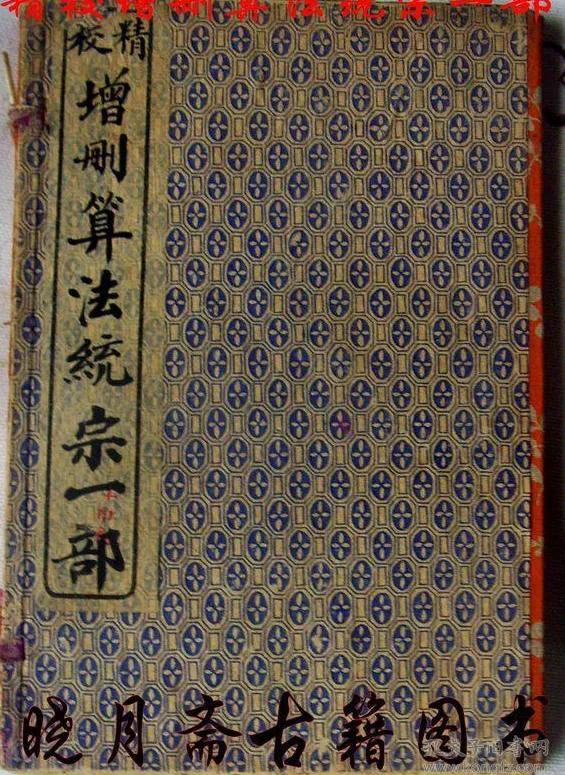 精校增删算法统宗一部
精校
增删算法統宗一部
晓月斋古籍图书